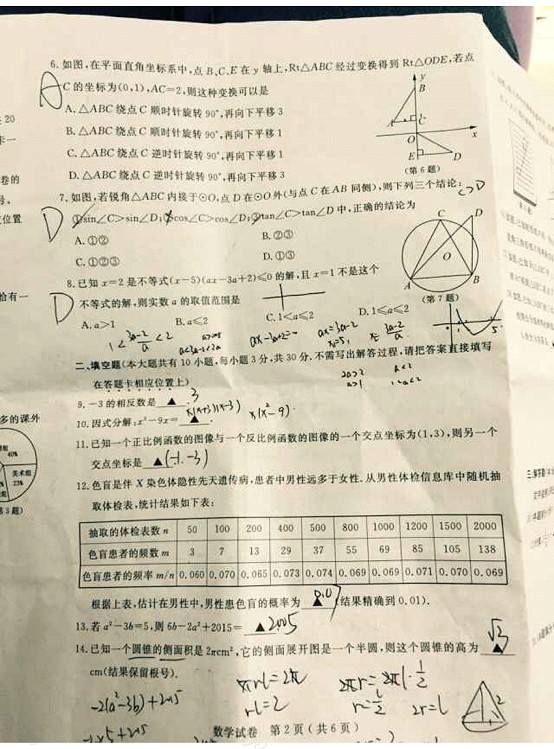 6. 如图,在平面直角坐标系中,点 B,C,E 在 y 轴上,Rt△ABC 经过变换得到 Rt△ODE,若点
C 的坐标为(0,1),AC=2,则这种变换可以是
A. △ABC 绕点 C 顺时针旋转 90°,再向下平移 3
B. △ABC 绕点 C 顺时针旋转 90°,再向下平移 1
C. △ABC 绕点 C 逆时针旋转 90°,再向下平移 1
D. △ABC 绕点 C 逆时针旋转 90°,再向下平移 3
A
y
B
A
C
O
x
E
D
(第 6 题)
7. 如图,若锐角△ABC 内接于⊙O,点 D 在⊙O 外(与点 C 在 AB 同侧),则下列三个结论:
①sin∠C>sin∠D;②cos∠C>cos∠D;③tan∠C>tan∠D 中,正确的结论为
A. ①②
B. ②③
C. ①②③
D. ①③
D
C>D
C
D
O
A
B
(第 7 题)
8. 已知 x=2 是不等式(x−5)(ax−3a+2)≤0 的解,且 x=1 不是这个
不等式的解,则实数 a 的取值范围是
A. a>1
B. a≤2
C. 1<a≤2
D. 1≤a≤2
D
1<3a-2/a<2
ax-3a+2=0
ax=3a-2
x=5,
x=3a-2/a
二、填空题(本大题共有 10 小题,每小题 3 分,共 30 分.不需写出解答过程,请把答案直接填写
在答题卡相应位置上)
9. −3 的相反数是 ▲ . 3
10. 因式分解:x³−9x= ▲ . x(x+3)(x-3) x(x²-9).
11. 已知一个正比例函数的图像与一个反比例函数的图像的一个交点坐标为(1,3),则另一个
交点坐标是 ▲ (-1,-3)
12. 色盲是伴 X 染色体隐性先天遗传病,患者中男性远多于女性.从男性体检信息库中随机抽
取体检表,统计结果如下表:
抽取的体检表数 n 50 100 200 400 500 800 1000 1200 1500 2000
色盲患者的频数 m 3 7 13 29 37 55 69 85 105 138
色盲患者的频率 m/n 0.060 0.070 0.065 0.073 0.074 0.069 0.069 0.071 0.070 0.069
根据上表,估计在男性中,男性患色盲的概率为 ▲ 0.07 (结果精确到 0.01).
13. 若 a²−3b=5,则 6b−2a²+2015= ▲ 2005
14. 已知一个圆锥的侧面积是 2πcm²,它的侧面展开图是一个半圆,则这个圆锥的高为 ▲ √3
cm(结果保留根号).
-2(a²-3b)+2015
πrl=2π
rl=2
2πr=2πl·1/2
2r=l
-2×5+2015
数学试卷 第 2 页(共 6 页)